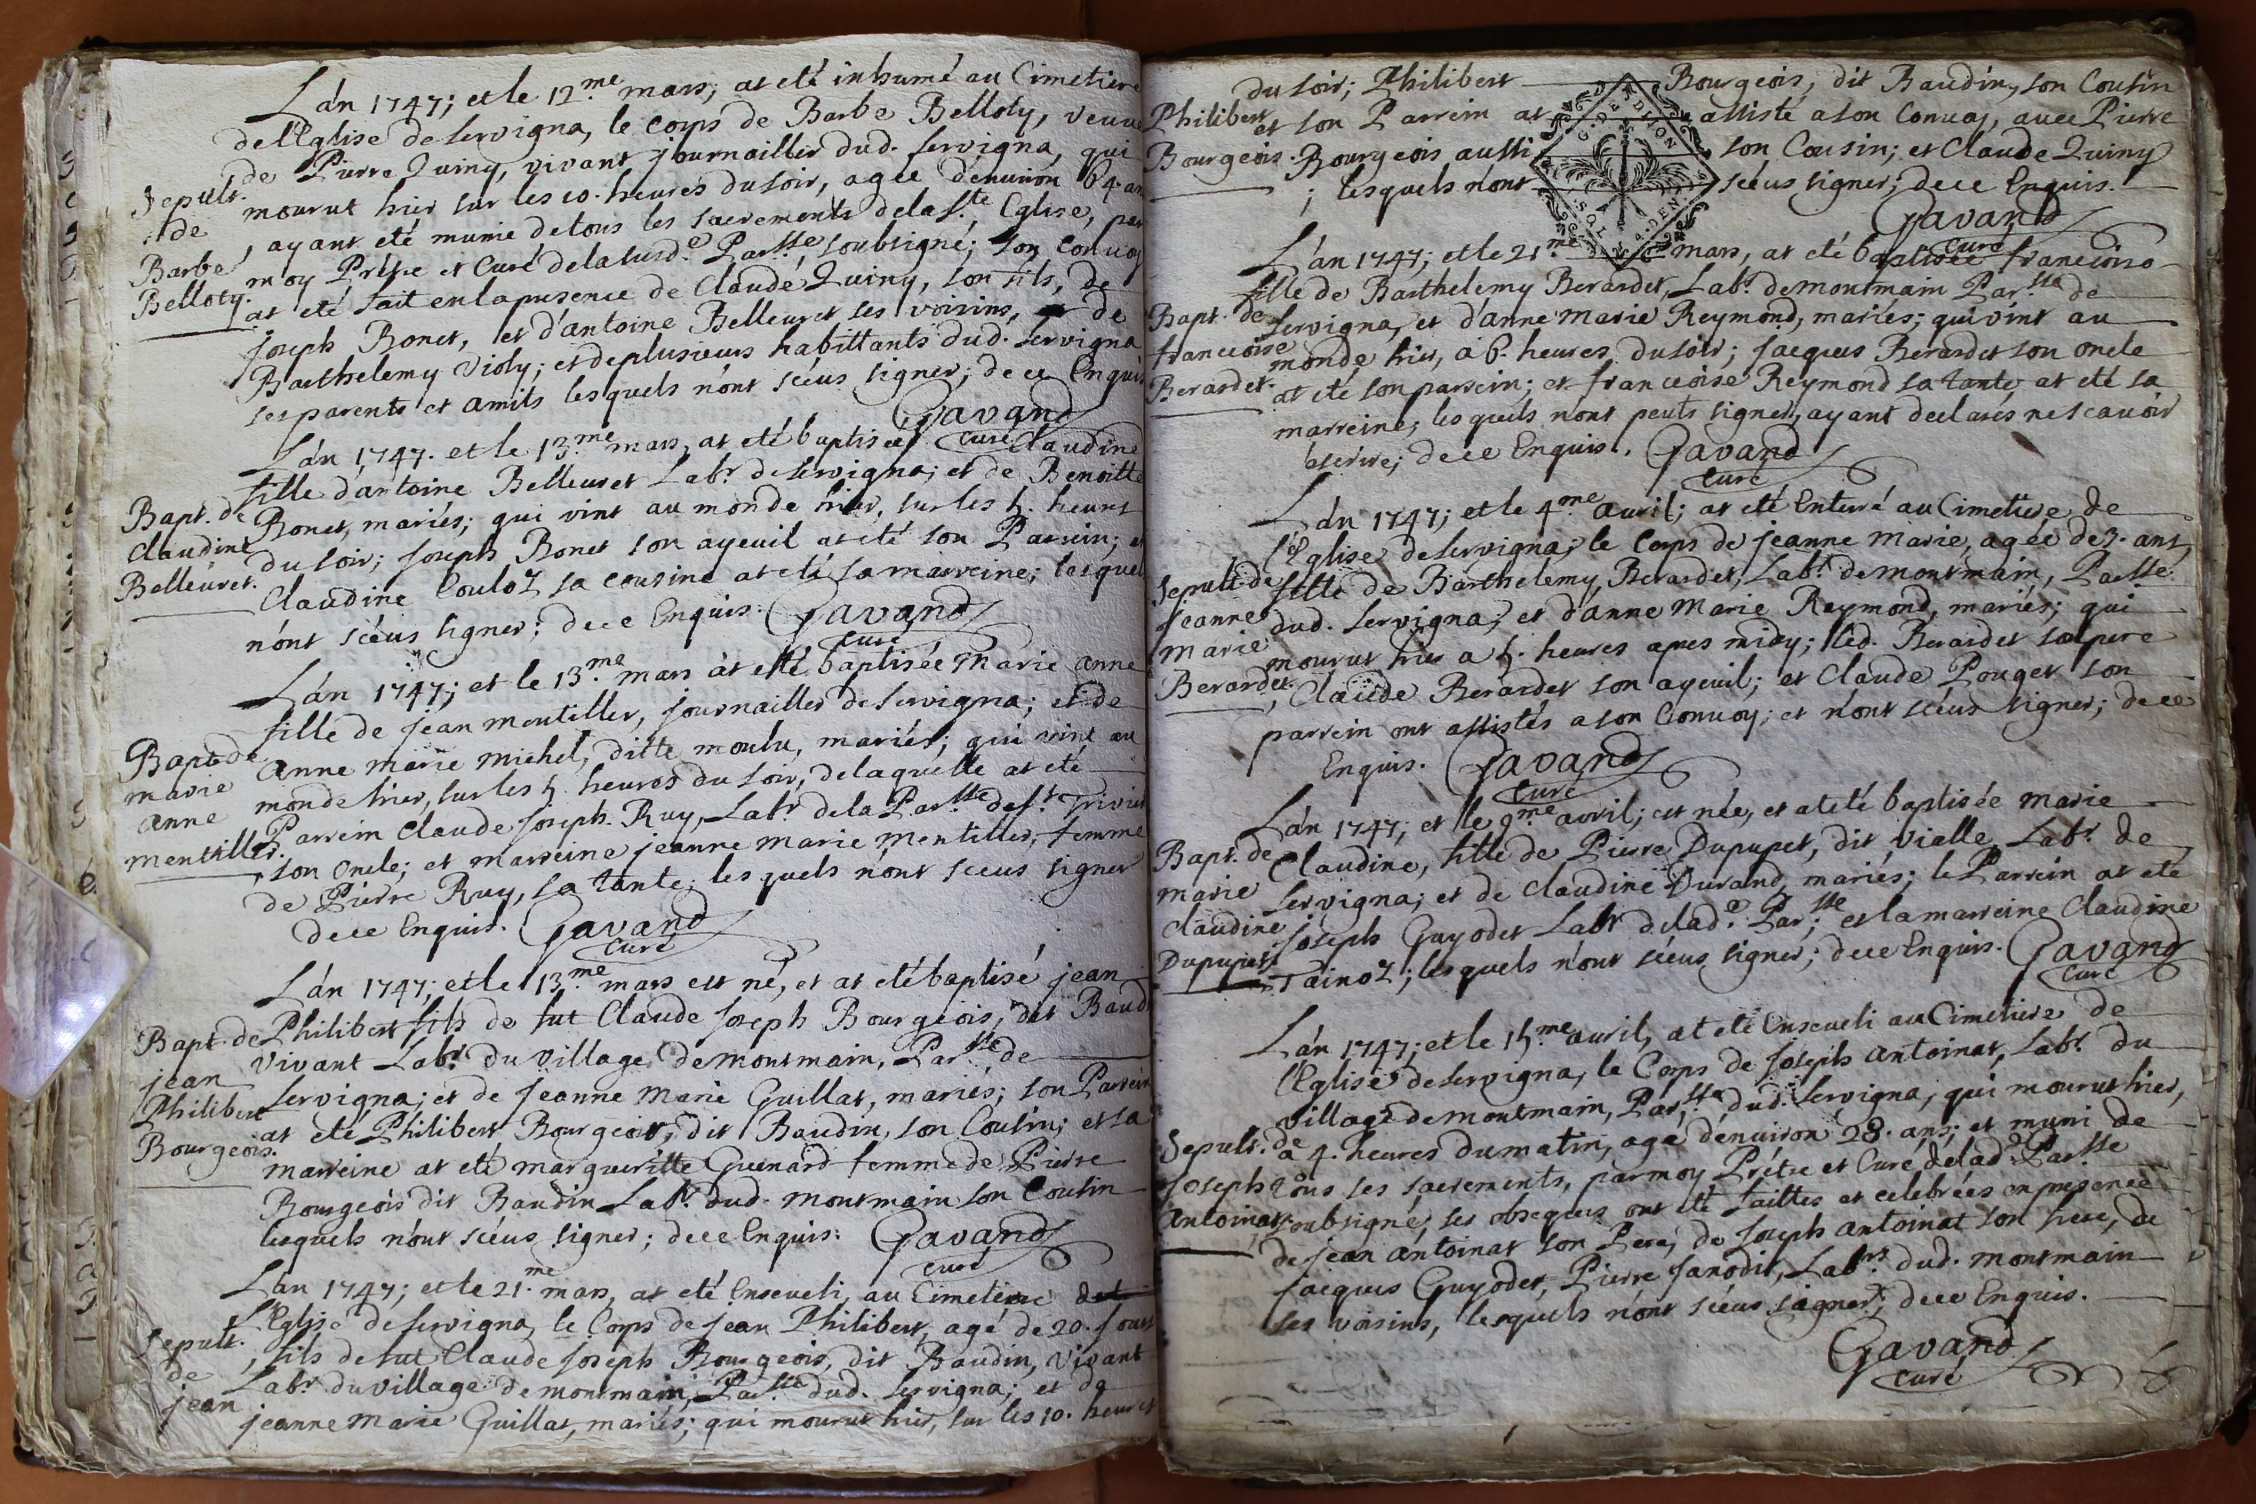 L'an 1747; et le 12.me mars; at eté inhumé au Cimetiere
de l'Eglise de Servigna, le corps de Barbe Belloty, veuve
de Pierre Quiny, vivant journaillier dud. Servigna, qui
Sepult. mourut hier sur les 10. heures du soir, agée d'enuiron 64. an
de , ayant eté munie de tous les sacrements de la Ste Eglise, par
Barbe moy Prêtre et Curé de la susd.e Par.sse, soubsigné; son convoy
Belloty. at eté fait en la presence de Claude Quiny, son fils, de
Joseph Bonet, et d'antoine Belleuret ses voisins, de
Barthelemy Violy; et de plusieurs habittants dud. Servigna
ses parents et amits lesquels n'ont scéus signer; de ce Enquis
Gavand
curé
L'an 1747. et le 13.me mars, at eté baptisée Claudine
fille d'antoine Belleuret Lab.r de Servigna; et de Benoitte
Bapt. de Bonet, mariés; qui vint au monde hier, sur les 5. heures
Claudine du soir; Joseph Bonet son ayeuil at eté son Parrein; et
Belleuret. Claudine Couloz sa cousine at eté sa marreine; lesquels
n'ont scéus signer; de ce Enquis. Gavand
curé
L'an 1747; et le 13.me mars at eté baptisée Marie anne
fille de jean mentiller, journaillier de Servigna; et de
Bapt de anne marie michel, ditte moulu, mariés; qui vint au
marie monde hier, sur les 5. heures du soir, de laquelle at eté
anne Parrein Claude Joseph Ruy, Lab.r de la Par.sse de S.t Trivier
mentiller. , son oncle; et marreine jeanne marie mentiller, femme
de Pierre Ruy, sa tante; lesquels n'ont sceus signer
de ce Enquis. Gavand
curé
L'an 1747; et le 13.me mars est né, et at eté baptisé jean
Bapt. de Philibert fils de fut Claude Joseph Bourgeois, dit Baud
jean vivant Lab.r du village de montmain, Par.sse de
Philibert Servigna; et de jeanne marie Guillat, mariés; son Parrein
Bourgeois. at eté Philibert Bourgeois, dit Baudin, son Cousin; et sa
marreine at eté margueritte Guenard femme de Pierre
Bourgeois dit Baudin Lab.r dud. montmain son Cousin
lesquels n'ont scéus signer; de ce Enquis: Gavand
curé
L'an 1747; et le 21.me mars, at eté Enseueli, au Cimetiere de
l'Eglise de Servigna, le Corps de jean Philibert, agé de 20. jours
Sepult. , fils de fut Claude Joseph Bourgeois, dit Baudin, vivant
de Lab.r du village de montmain, Par.sse dud. Servigna; et de
jean jeanne marie Guillat, mariés; qui mourut hier, sur les 10. heures
du soir; Philibert Bourgeois, dit Baudin, son Cousin
Philibert et son Parrein at assisté a son Conuoy, auec Pierre
Bourgeois. Bourgeois aussi son Cousin; et Claude Quiny
; lesquels n'ont scéus signer; de ce Enquis.
G. DE DIJON
SOLS 4. DEN.
Gavand
curé
L'an 1747; et le 21.me mars, at eté baptisée francoise
fille de Barthelemy Berardet, Lab.r de montmain Par.sse de
Bapt. de Servigna, et d'anne marie Reymond, mariés; qui vint au
francoise monde hier, à 6. heures du soir; jacques Berardet son oncle
Berardet. at eté son parrein; et francoise Reymond sa tante at eté sa
marreine; lesquels n'ont peuts signer, ayant declarés ne scauoir
ascrire; de ce Enquis. Gavand
curé
L'an 1747; et le 4.me auril; at eté Enterré au Cimetiere de
l'Eglise de Servigna; le corps de jeanne marie, agée de 3. ans,
Sepult. de fille de Barthelemy Berardet, Lab.r de montmain, Par.sse
jeanne dud. Servigna; et d'anne marie Reymond, mariés; qui
marie mourut hier a 5. heures apres midy; led. Berardet son pere
Berardet. , Claude Berardet son ayeuil; et Claude Pouget son
parrein ont assistés a son Conuoy; et n'ont scéus signer; de ce
Enquis. Gavand
curé
L'an 1747; et le 9.me avril; est née, et at eté baptisée marie
Bapt. de Claudine, fille de Pierre Dupupet, dit Vialle, Lab.r de
marie Servigna; et de claudine Durand, mariés; le Parrein at eté
claudine Joseph Guyodet Lab.r de lad.e Par.sse; et la marreine Claudine
Dupupet. Tainoz; lesquels n'ont scéus signer; de ce Enquis. Gavand
curé
L'an 1747; et le 15.me auril, at eté Enseueli au Cimetiere de
l'Eglise de Servigna, le Corps de Joseph antoinat, Lab.r du
village de montmain, Par.sse dud. Servigna, qui mourut hier,
Sepult. de a 4. heures du matin, agé d'enuiron 28. ans; et muni de
Joseph tous ses sacrements, par moy Prêtre et Curé de lad.e Par.sse
antoinat. , soubsigné; ses obseques ont eté faittes et celebrées en presence
de jean antoinat son Pere; de Joseph antoinat son frere, de
jacques Guyodet, Pierre Janodit, Lab.rs dud. montmain
ses voisins, lesquels n'ont scéus signer; de ce Enquis.
Gavand
curé